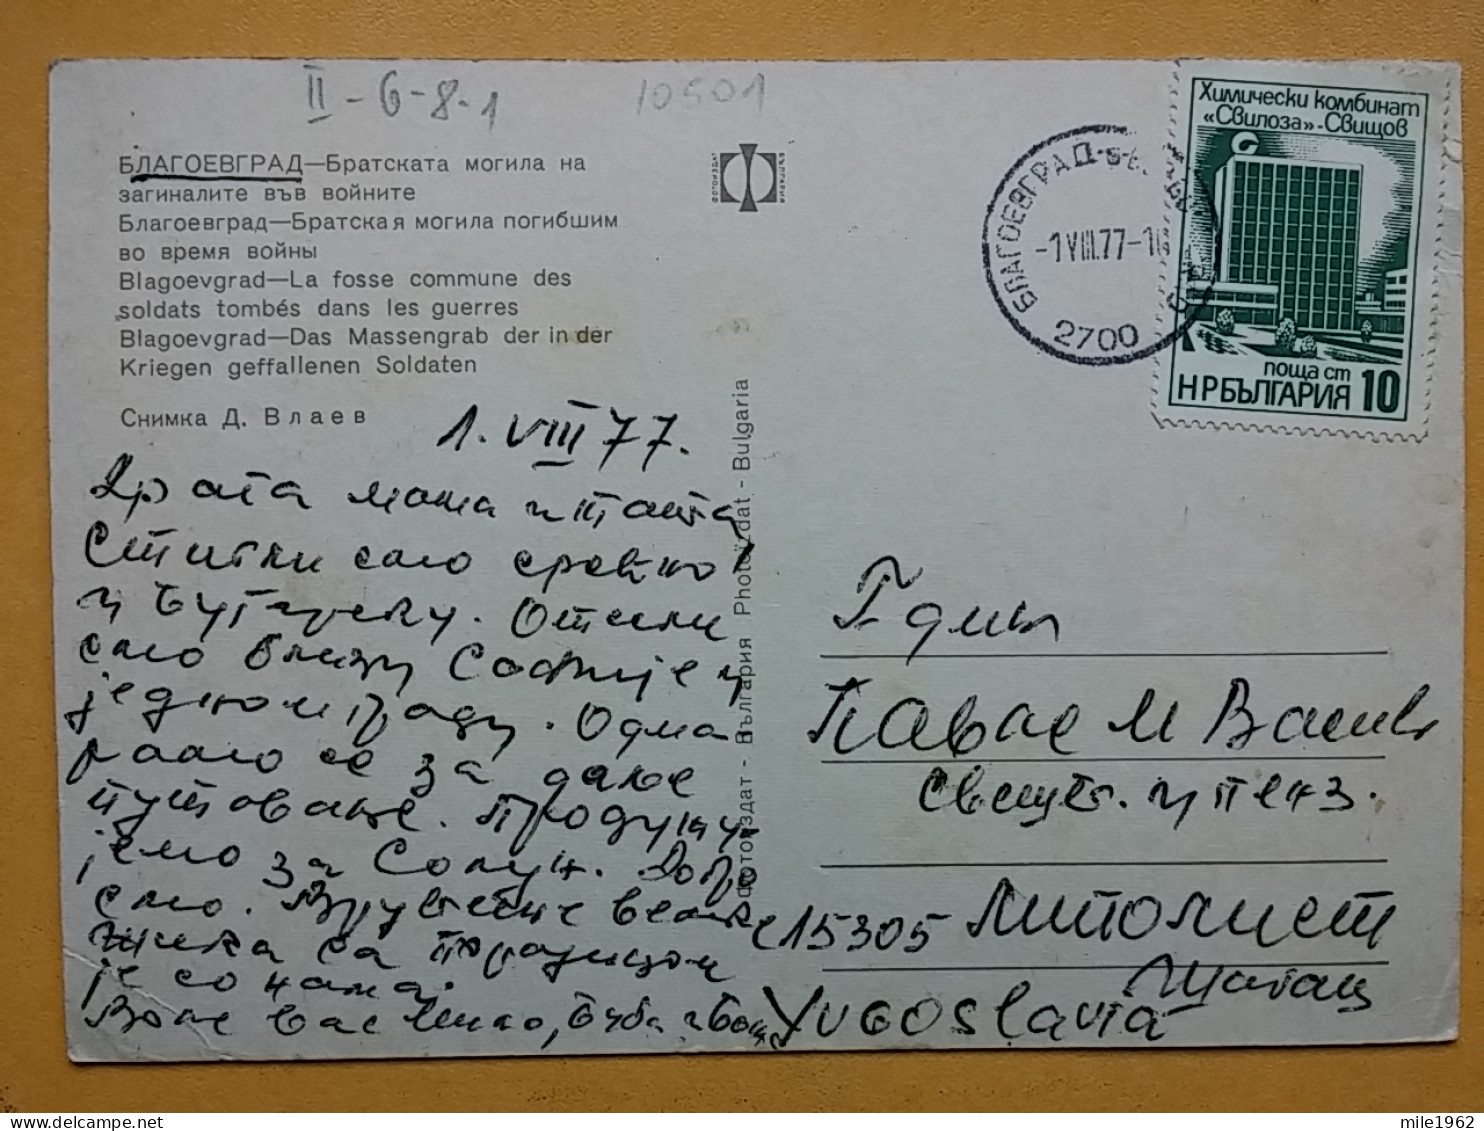 II-6-8-1
10501
БЛАГОЕВГРАД—Братската могила на
загиналите във войните
Благоевград—Братская могила погибшим
во время войны
Blagoevgrad—La fosse commune des
soldats tombés dans les guerres
Blagoevgrad—Das Massengrab der in der
Kriegen geffallenen Soldaten
Снимка Д. Влаев
ФОТОИЗДАТ
БЪЛГАРИЯ
Фотоиздат - България Photoizdat - Bulgaria
БЛАГОЕВГРАД
-1 VIII.77-1
2700
Химически комбинат
«Свилоза»-Свищов
поща ст
НРБЪЛГАРИЯ 10
1. VIII 77.
Драга мама и тата
Стигли смо срећно
у Бугарску. Отсели
смо близу Софије у
једном граду. Одма
рамо се за даље
путовање. Продужу
јемо за Солун. Добро
смо.
са породицом
је са нама.
Воле вас
Павле М Васић
свешт. у пенз.
15305 Липолист
Шабац
Yugoslavia
mile1962